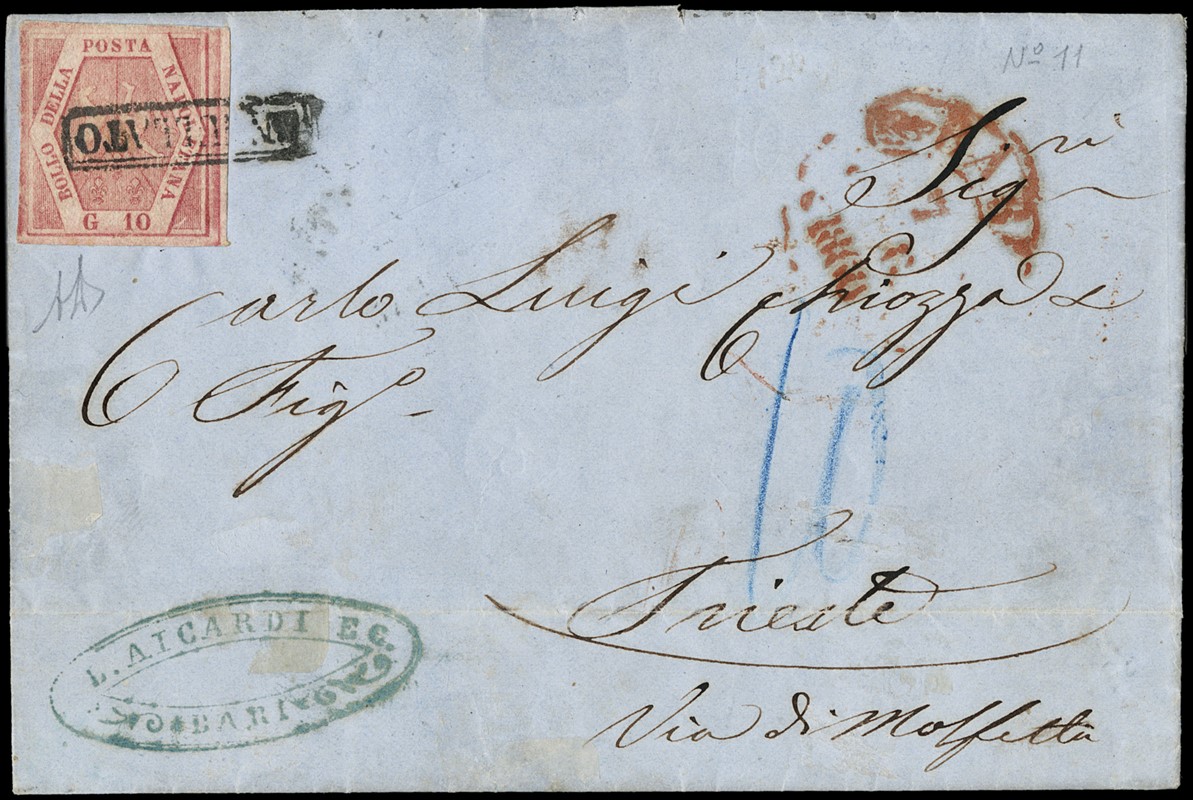 POSTA
BOLLO DELLA
NAPOLETANA
G 10
ANNULLATO
Nº 11
Sigri
Carlo Luigi Chiozza &
Figº
10
Trieste
Via di Molfetta
L. AICARDI E C.
BARI